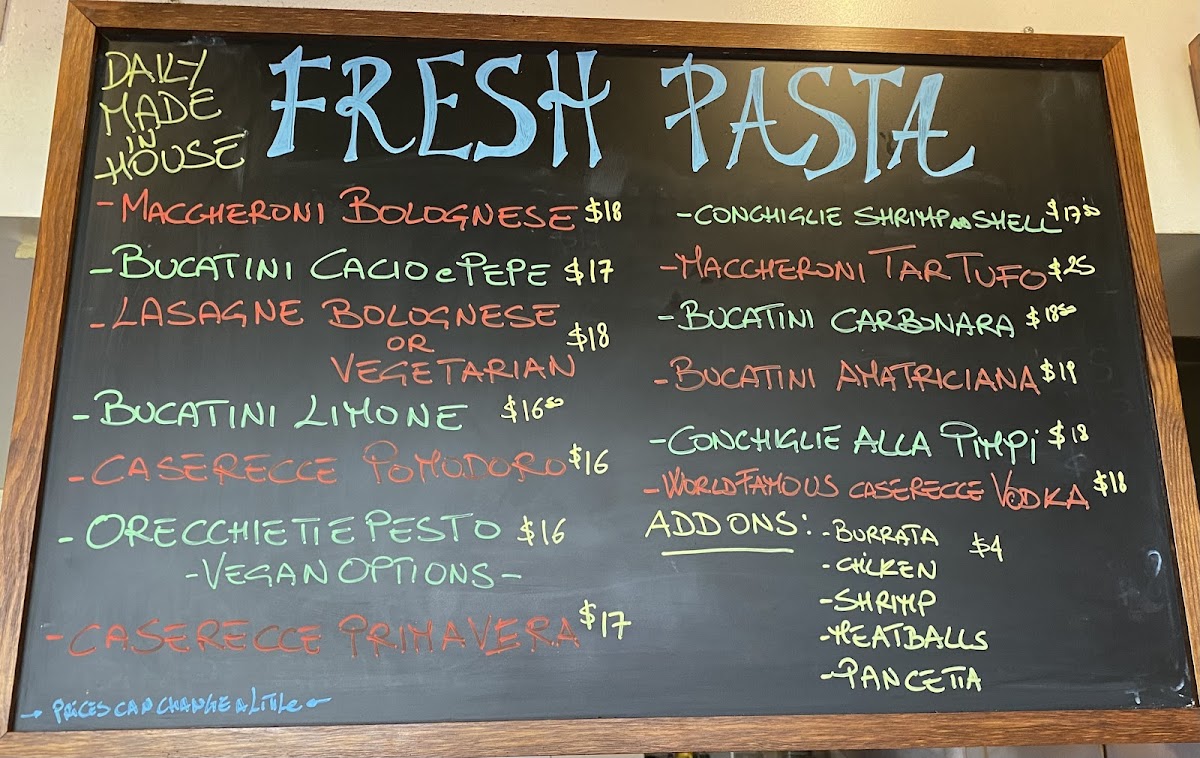 DAILY
MADE
IN
HOUSE
FRESH PASTA
- MACCHERONI BOLOGNESE $18
- BUCATINI CACIO e PEPE $17
- LASAGNE BOLOGNESE
OR
VEGETARIAN $18
- BUCATINI LIMONE $16.50
- CASERECCE POMODORO $16
- ORECCHIETTE PESTO $16
- VEGAN OPTIONS -
- CASERECCE PRIMAVERA $17
→ PRICES CAN CHANGE A LITTLE ←
- CONCHIGLIE SHRIMP no SHELL $17.50
- MACCHERONI TARTUFO $25
- BUCATINI CARBONARA $18.50
- BUCATINI AMATRICIANA $19
- CONCHIGLIE ALLA PIMPi $18
- WORLD FAMOUS CASERECCE VODKA $18
ADD ONS:
- BURRATA $4
- CHICKEN
- SHRIMP
- MEATBALLS
- PANCETTA